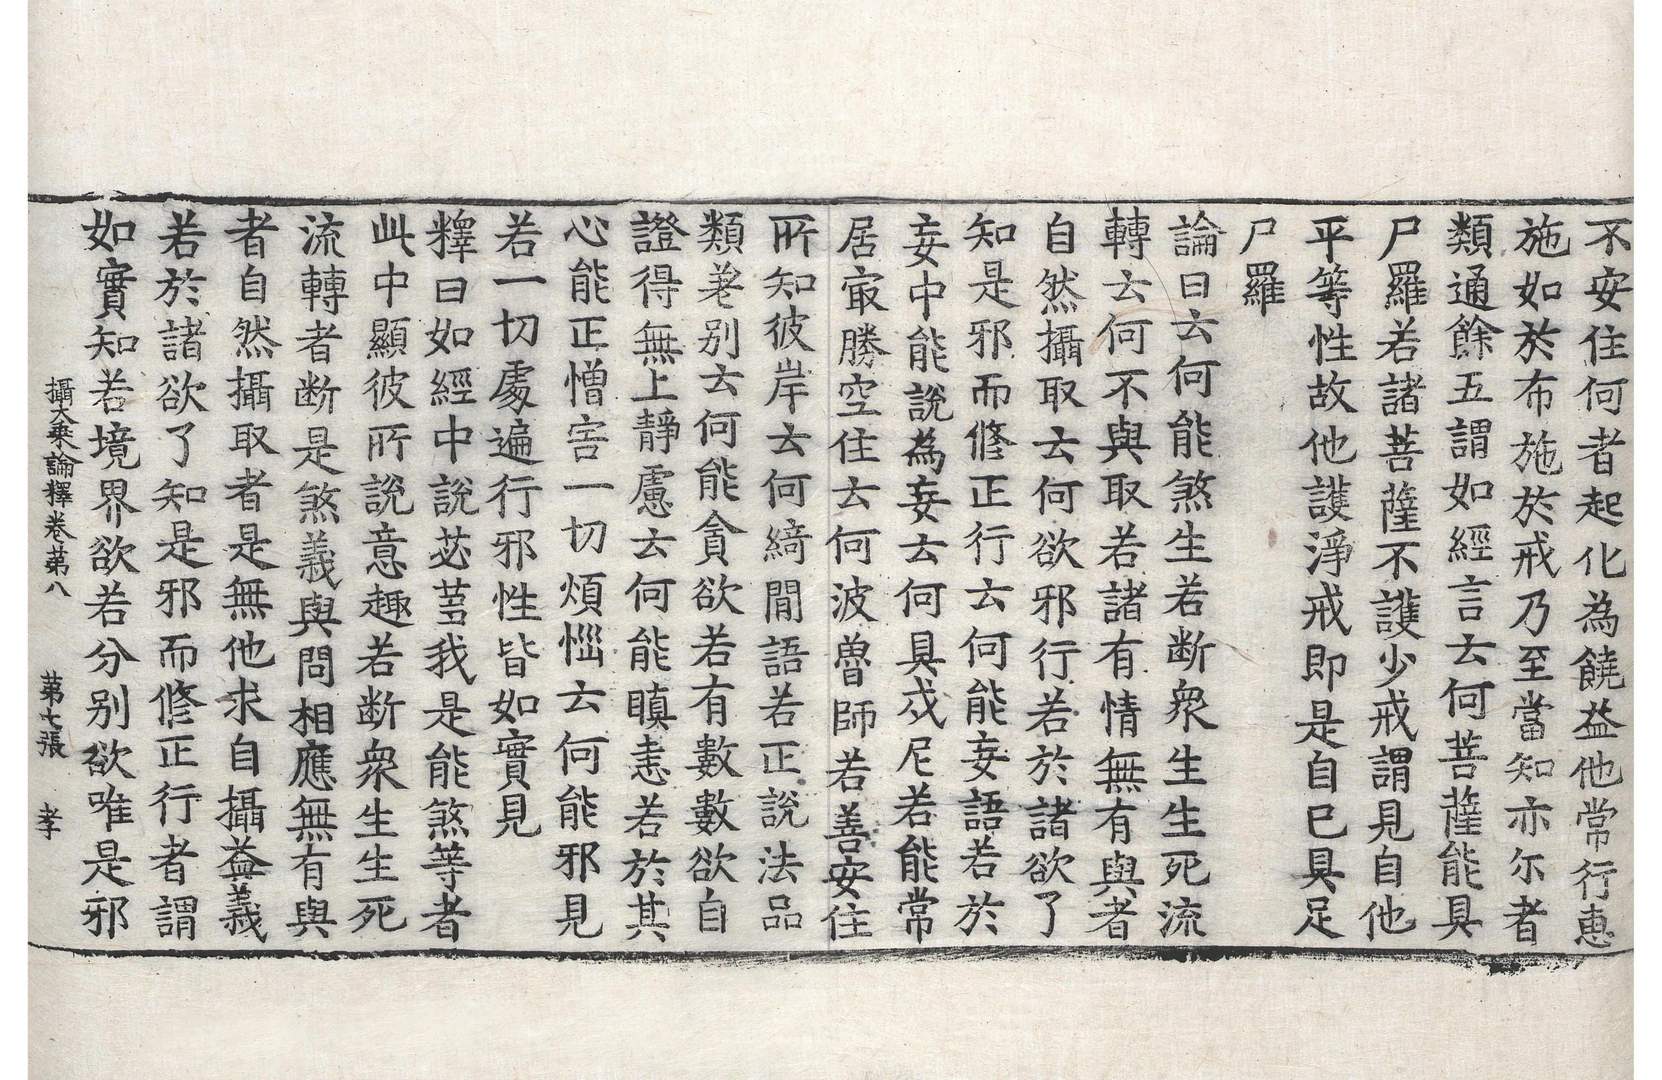 不安住何者起化為饒益他常行惠
施如於布施於戒乃至當知亦尒者
類通餘五謂如經言云何菩薩能具
尸羅若諸菩薩不護少戒謂見自他
平等性故他護淨戒即是自已具足
尸羅
論曰云何能煞生若断衆生生死流
轉云何不與取若諸有情無有與者
自然攝取云何欲邪行若於諸欲了
知是邪而修正行云何能妄語若於
妄中能說為妄云何具戍尼若能常
居㝡勝空住云何波魯師若善安住
所知彼岸云何綺間語若正說法品
類差别云何能貪欲若有數數欲自
證得無上静慮云何能瞋恚若於其
心能正憎害一切煩惱云何能邪見
若一切處遍行邪性皆如實見
釋曰如經中說苾芻我是能煞等者
此中顯彼所說意趣若断衆生生死
流轉者断是煞義與問相應無有與
者自然攝取者是無他求自攝益義
若於諸欲了知是邪而修正行者謂
如實知若境界欲若分别欲唯是邪
攝大乗論釋卷苐八 苐七張 孝